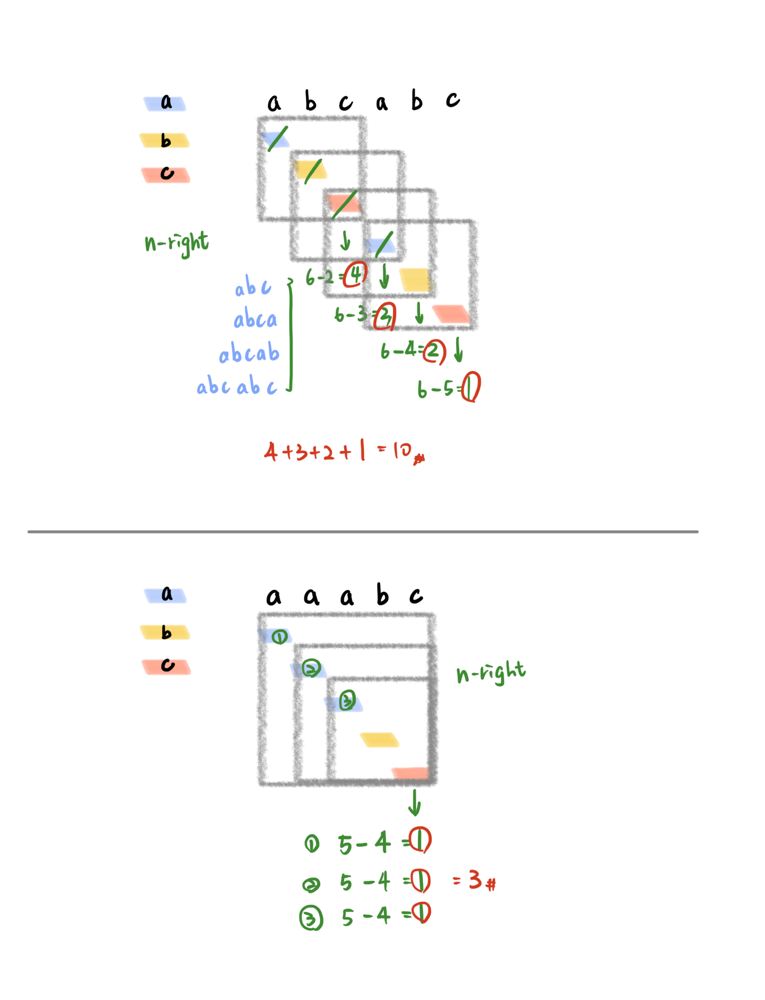 a
b
c
a b c a b c
n-right
abc
abca
abcab
abcabc
6-2=4
6-3=3
6-4=2
6-5=1
4+3+2+1=10#
a
b
c
a a a b c
①
②
③
n-right
① 5-4=1
② 5-4=1 =3#
③ 5-4=1